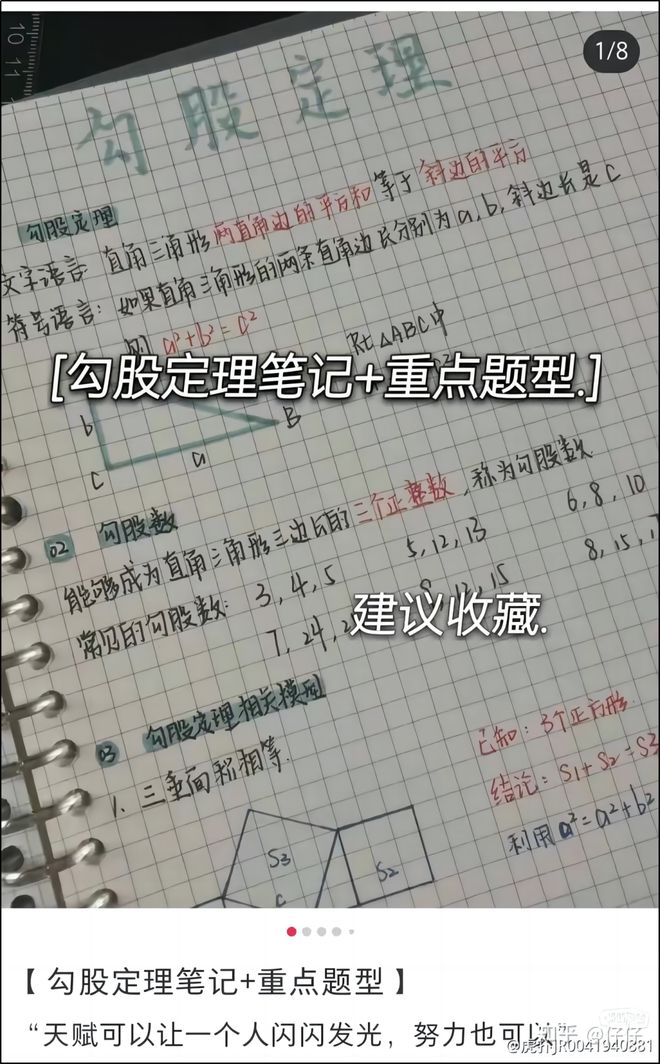 10 11
1/8
勾股定理
勾股定理
文字语言：直角三角形两直角边的平方和等于斜边的平方
符号语言：如果直角三角形的两条直角边长分别为a,b,斜边长是c
则 a²+b²=c²
Rt△ABC中
[勾股定理笔记+重点题型.]
b
B
C
a
02 勾股数
能够成为直角三角形三边长的三个正整数,称为勾股数
常见的勾股数: 3,4,5 5,12,13 6,8,10
7,24, 12,15 8,15,1
建议收藏.
03 勾股定理相关模型
1. 三垂面积相等.
已知：3个正方形
结论：S1+S2=S3
利用 a²+b²
S3
S2
c
【 勾股定理笔记+重点题型 】
“天赋可以让一个人闪闪发光，努力也可以”
知乎 @仔仔
@虎扑JR0041940881